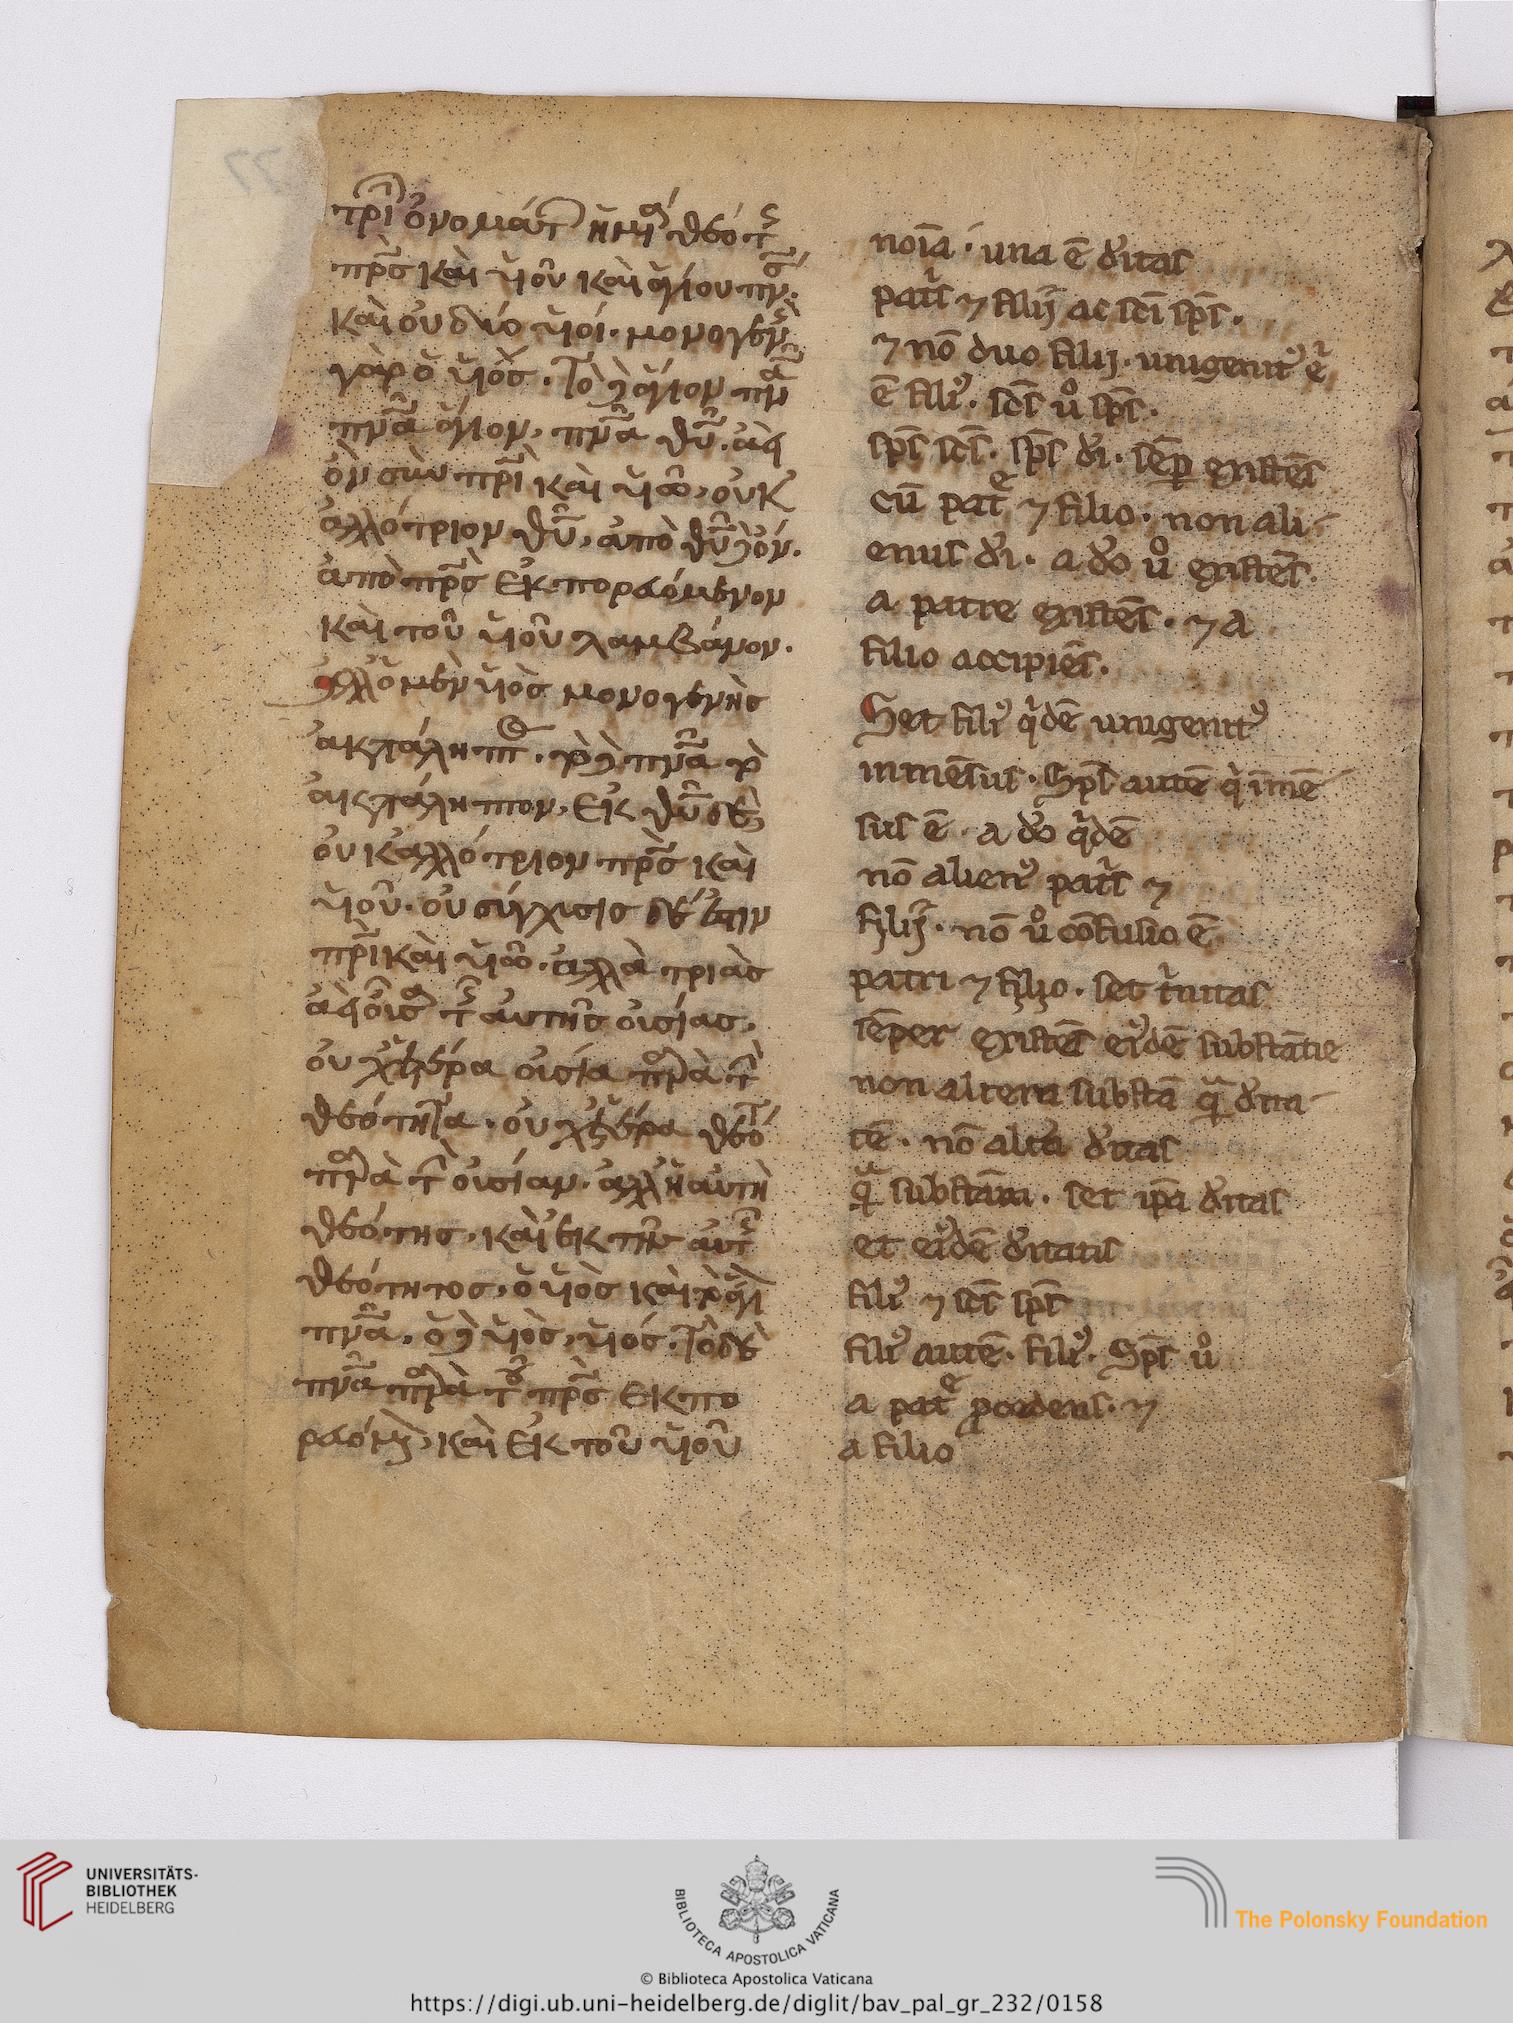 τρὶ ὀνομάτ ἡ μία θεότς
πρ̅ς καὶ υἱοῦ καὶ ἁγίου πν̅ς·
καὶ οὐ δύο υἱοί· μονογενὴς
γὰρ ὁ υἱός· τὸ δ ἅγιον πν̅α
πν̅α ἅγιον, πν̅α θυ̅· ἀεὶ
ὂν σὺν πρ̅ι καὶ υἱῶ, οὐκ
ἀλλότριον θυ̅, ἀπὸ θυ̅ δ ὄν·
ἀπὸ πρ̅ς ἐκπορευόμενον
καὶ τοῦ υἱοῦ λαμβάνον·
ἀλλ ὁ μὲν υἱὸς μονογενὴς
ἀκατάληπτ· τὸ δ πν̅α τὸ
ἀκατάληπτον, ἐκ θυ̅ δὲ
οὐκ ἀλλότριον πρ̅ς καὶ
υἱοῦ· οὐ σύγχισις δέ ἐστιν
πρ̅ι καὶ υἱῶ· ἀλλὰ τριὰς
ἀεὶ οὖσα τ αὐτῆς οὐσίας·
οὐχ ἑτέρα οὐσία παρὰ τ
θεότητα· οὐχ ἑτέρα θεότ
παρὰ τ οὐσίαν· ἀλλ ἡ αὐτὴ
θεότης· καὶ ἐκ τῆς αὐτ
θεότητος· ὁ υἱὸς καὶ τὸ ἅγι
πν̅α· ὁ δ υἱὸς, υἱός· τὸ δὲ
πν̅α παρὰ τοῦ πρ̅ς ἐκπο
ρευόμ, καὶ ἐκ τοῦ υἱοῦ
noi̅a · una e̅ d̅itas
pat̅s ⁊ filij ac sc̅i sp̅s ·
⁊ no̅ duo filij · unigenitꝰ e̅
e̅ filiꝰ · sc̅s ů sp̅s ·
sp̅s sc̅s · sp̅s d̅i · se̅p existe̅s
cu̅ pat^e ⁊ filio · non ali-
enus d̅i · a d̅o ů existe̅s ·
a patre existe̅s · ⁊ a
filio accipie̅s ·
Set filiꝰ q̅de̅ unigenitꝰ
inme̅sus · Sp̅s aute̅ q i̅me̅-
sus e̅ · a d̅o q̅de̅
no̅ alienꝰ pat̅s ⁊
filij · no̅ ů co̅fusio e̅
patri ⁊ filio · set t̅nitas
se̅per existe̅s eiꝰde̅ substa̅tie
non altera substa̅ q̅ d̅ita-
te̅ · no̅ alt̅a d̅itas
q̅ substa̅m · set ip̅a d̅itas
et eiꝰde̅ d̅itatis
filiꝰ ⁊ sc̅s sp̅s
filiꝰ aute̅ · filiꝰ · Sp̅s ů
a pat^e ꝓcedens · ⁊
a filio
UNIVERSITÄTS-
BIBLIOTHEK
HEIDELBERG
BIBLIOTECA APOSTOLICA VATICANA
© Biblioteca Apostolica Vaticana
The Polonsky Foundation
https://digi.ub.uni-heidelberg.de/diglit/bav_pal_gr_232/0158